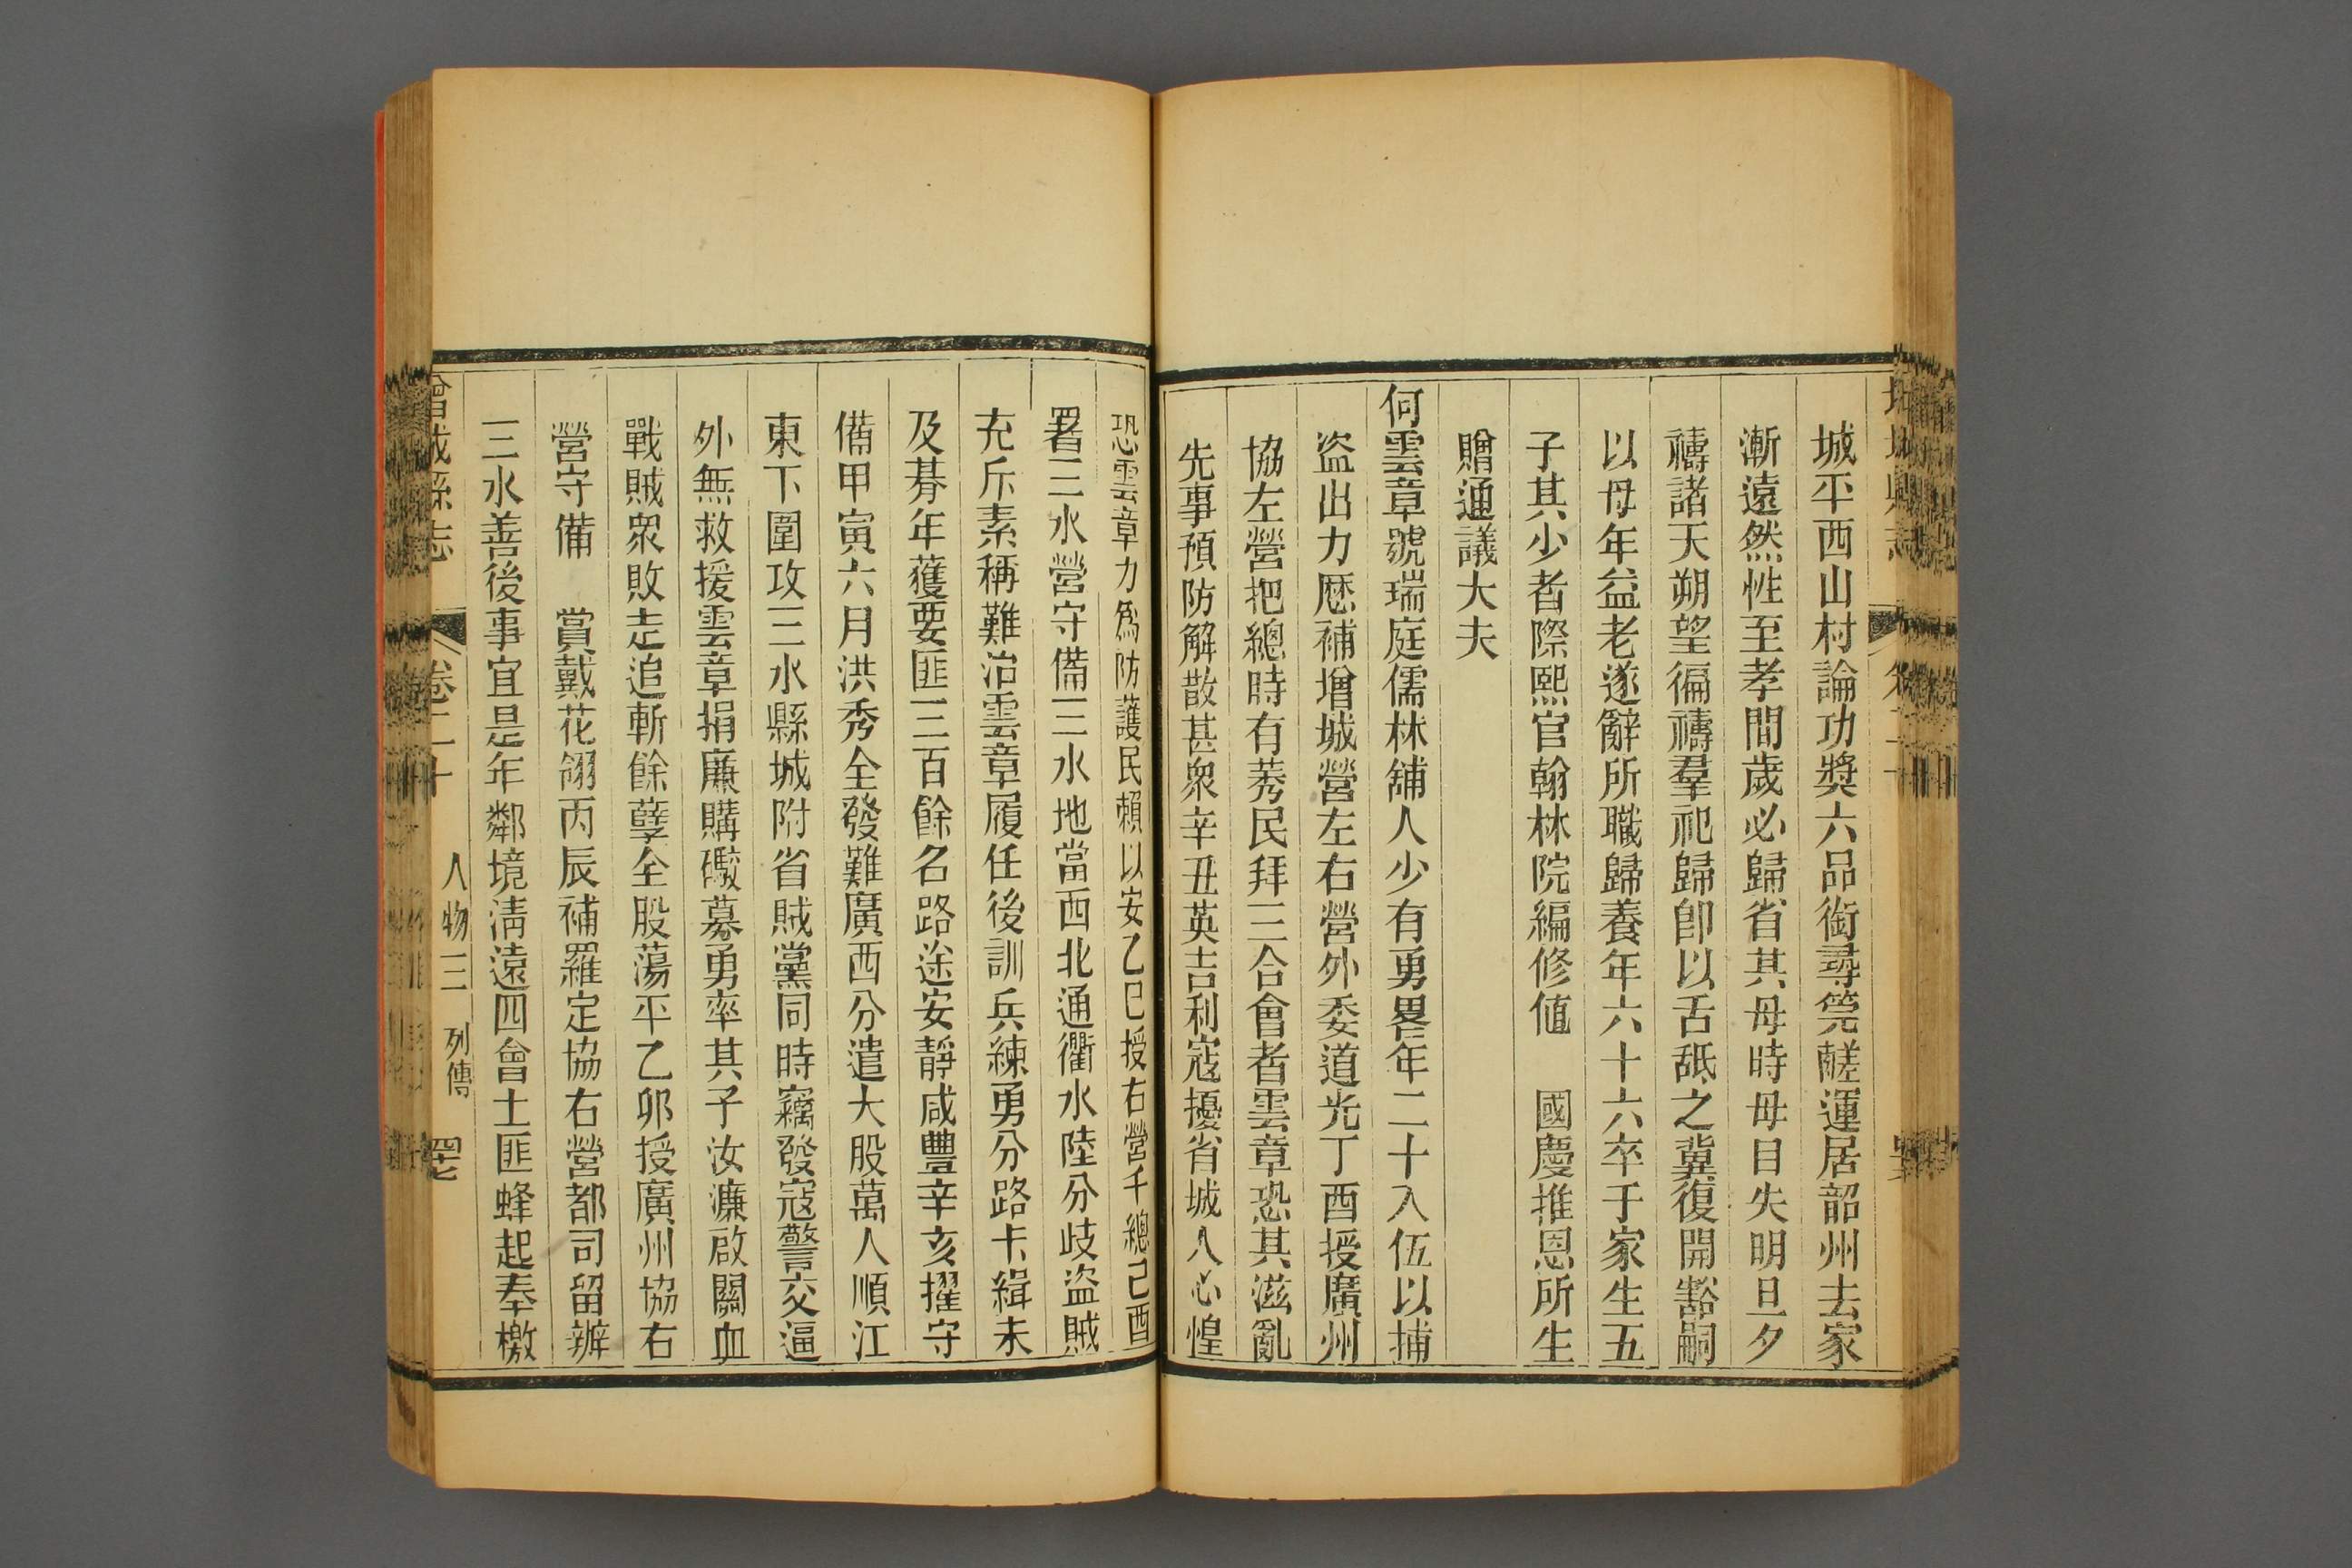 城平西山村論功獎六品銜尋筦鹺運居韶州去家
漸遠然性至孝間歲必歸省其母時母目失明旦夕
禱諸天朔望徧禱羣祀歸卽以舌舐之冀復開豁嗣
以母年益老遂辭所職歸養年六十六卒于家生五
子其少者際熙官翰林院編修値　國慶推恩所生
贈通議大夫
何雲章號瑞庭儒林舖人少有勇畧年二十入伍以捕
盜出力歷補增城營左右營外委道光丁酉授廣州
協左營把總時有莠民拜三合會者雲章恐其滋亂
先事預防解散甚衆辛丑英吉利寇擾省城人心惶
恐雲章力爲防護民賴以安乙巳授右營千總己酉
署三水營守備三水地當西北通衢水陸分歧盜賊
充斥素稱難治雲章履任後訓兵練勇分路卡緝未
及朞年獲要匪三百餘名路途安靜咸豐辛亥擢守
備甲寅六月洪秀全發難廣西分遣大股萬人順江
東下圍攻三水縣城附省賊黨同時竊發寇警交逼
外無救援雲章捐廉購礮募勇率其子汝濂啟關血
戰賊衆敗走追斬餘孽全股蕩平乙卯授廣州協右
營守備　賞戴花翎丙辰補羅定協右營都司留辦
三水善後事宜是年鄰境淸遠四會土匪蜂起奉檄
增城縣志　卷二十　人物三　列傳